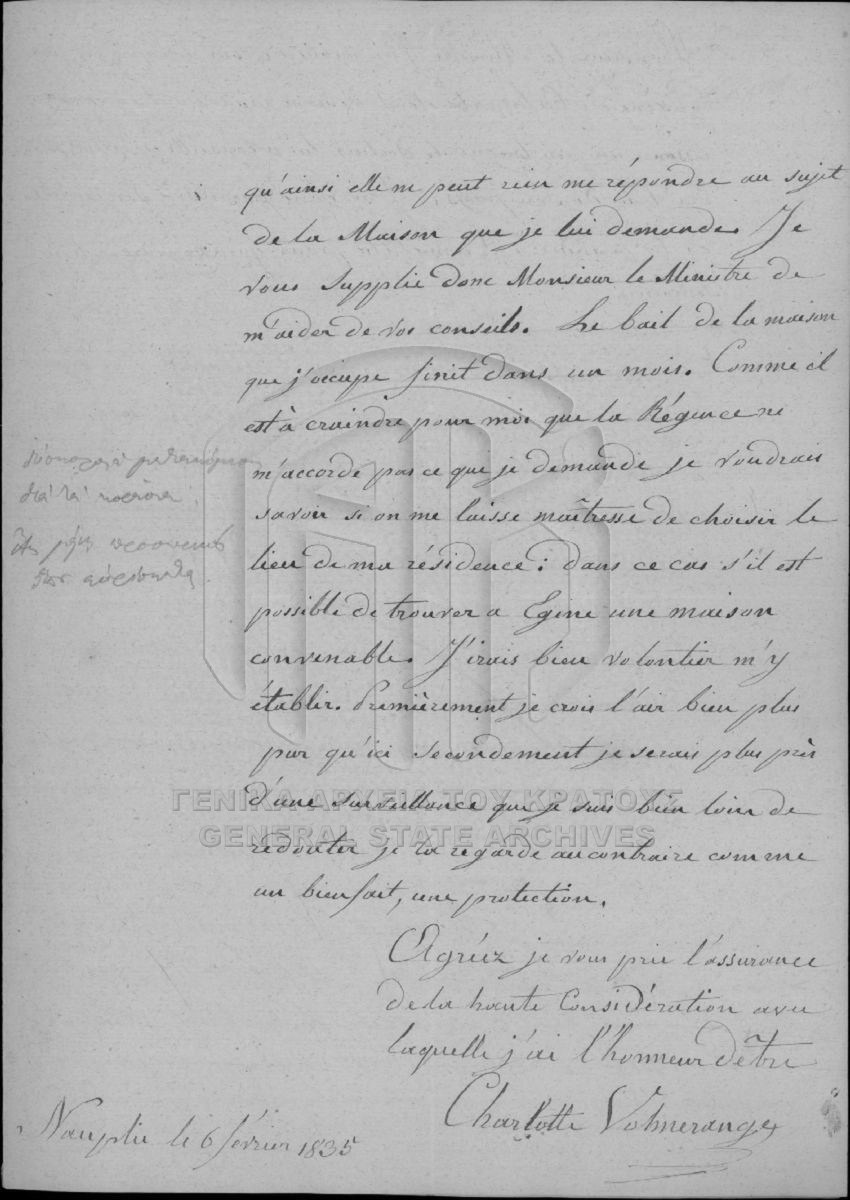 qu'ainsi elle ne peut rien me répondre au sujet
de la Maison que je lui demande. Je
vous supplie donc Monsieur le Ministre de
m'aider de vos conseils. Le bail de la maison
que j'occupe finit dans un mois. Comme il
est à craindre pour moi que la Régence ne
m'accorde pas ce que je demande je voudrais
savoir si on me laisse maîtresse de choisir le
lieu de ma résidence : dans ce cas s'il est
possible de trouver a Egine une maison
convenable. J'irais bien volontier m'y
établir. Premièrement je crois l'air bien plus
pur qu'ici secondement je serais plus près
d'une surveillance que je suis bien loin de
redouter je la regarde au contraire comme
un bienfait, une protection.
Agréez je vous prie l'assurance
de la haute Considération avec
laquelle j'ai l'honneur d'être
Charlotte Volmerange
Nauplie le 6 février 1835
διὰ τὰ
ΓΕΝΙΚΑ ΑΡΧΕΙΑ ΤΟΥ ΚΡΑΤΟΥΣ
GENERAL STATE ARCHIVES